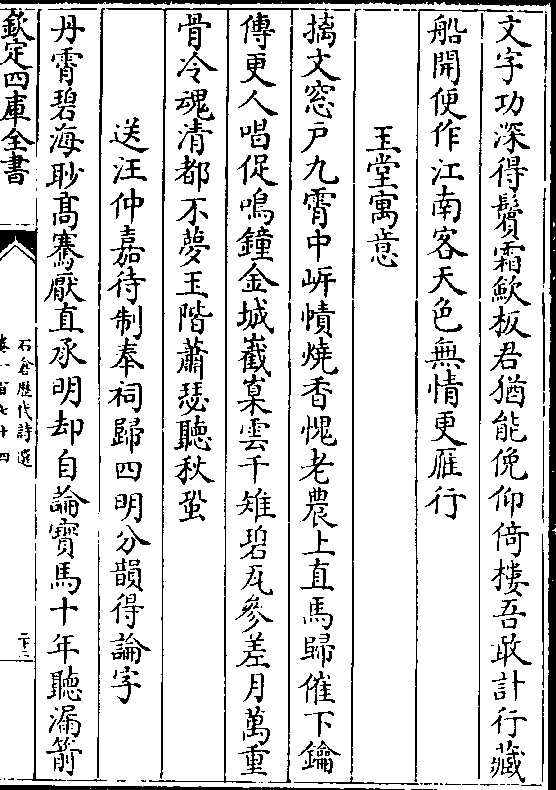 文字功深得鬢霜歛板君猶能俛仰倚樓吾敢計行藏
船開便作江南客天色無情更雁行
玉堂寓意
摛文窓户九霄中岸幘燒香愧老農上直馬歸催下鑰
傳更人唱促鳴鐘金城巀嵲雲千雉碧瓦參差月萬重
骨冷魂清都不夢玉階蕭瑟聽秋蛩
送汪仲嘉待制奉祠歸四明分韻得論字
丹霄碧海眇髙騫厭直承明却自論寶馬十年聽漏箭
欽定四庫全書
石倉歴代詩選
卷一百七十四
二十二